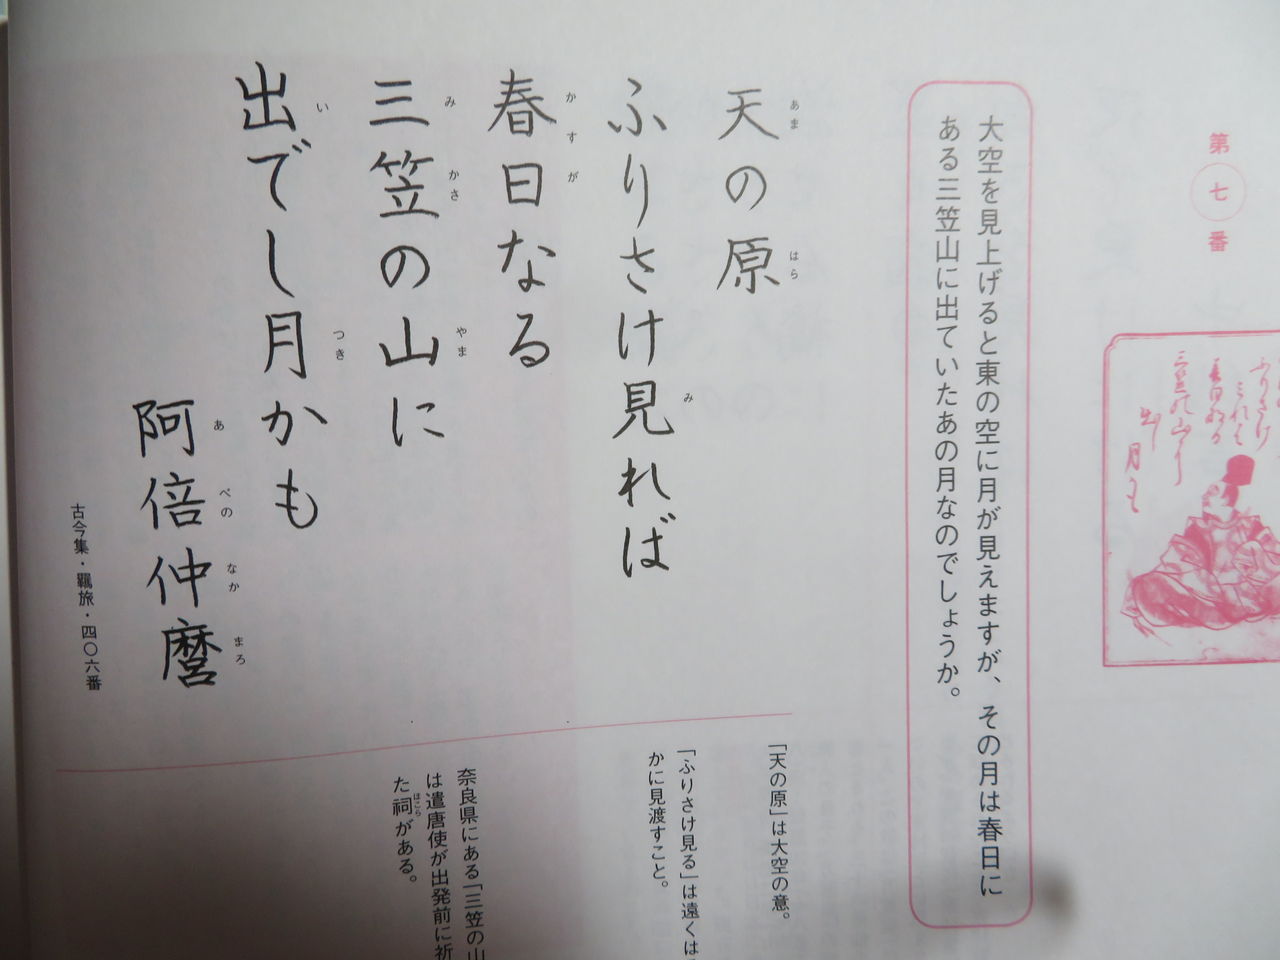 第七番
大空を見上げると東の空に月が見えますが、その月は春日に
ある三笠山に出ていたあの月なのでしょうか。
天の原
あま
はら
ふりさけ見れば
み
春日なる
かすが
三笠の山に
み
かさ
やま
出でし月かも
い
つき
阿倍仲麿
あ
べの
なか
まろ
古今集・羈旅・四〇六番
「天の原」は大空の意。
「ふりさけ見る」は遠くは
かに見渡すこと。
奈良県にある「三笠の山
は遣唐使が出発前に祈
た祠がある。
ほこら